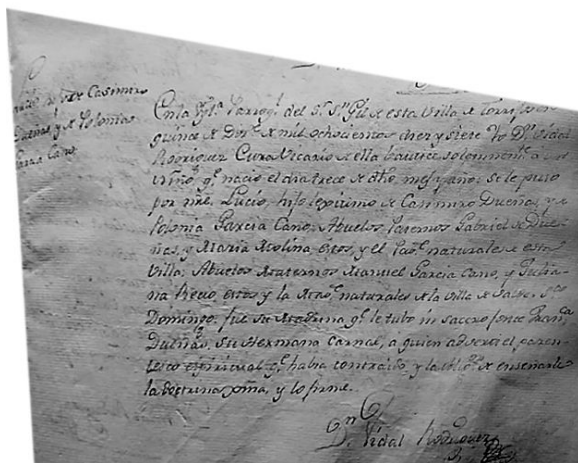 Lucio hijo de Casimiro
Dueñas, y de Polonia
Garcia Cano.
En la Ygl.ª Parroq.l del S.r S.n Gil de esta Villa de
quince de Dic.e de mil ochocientos diez y siete Yo D.n Vidal
Rodriguez Cura Vicario de ella bautice solemnem.te a un
niño q.e nacio el dia trece de dho mes y año: se le puso
por nre, Lucio, hijo lexitimo de Casimiro Dueñas, y de
Polonia Garcia Cano: Abuelos Paternos Gabriel de Due-
ñas, y Maria Molina, estos, y el Pad.e naturales de esta
Villa: Abuelos Maternos Manuel Garcia Cano, y Julia-
na Recio, estos y la Mad.e naturales de la Villa de
Domingo: fue su Madrina q.e le tubo in sacro fonte Fran.ca
Dueñas, su Hermana Carnal, a quien adverti el paren-
tesco espiritual q.e habia contraido, y la oblig.n de enseñarle
la doctrina xptna, y lo firmé.
D.n Vidal Rodriguez